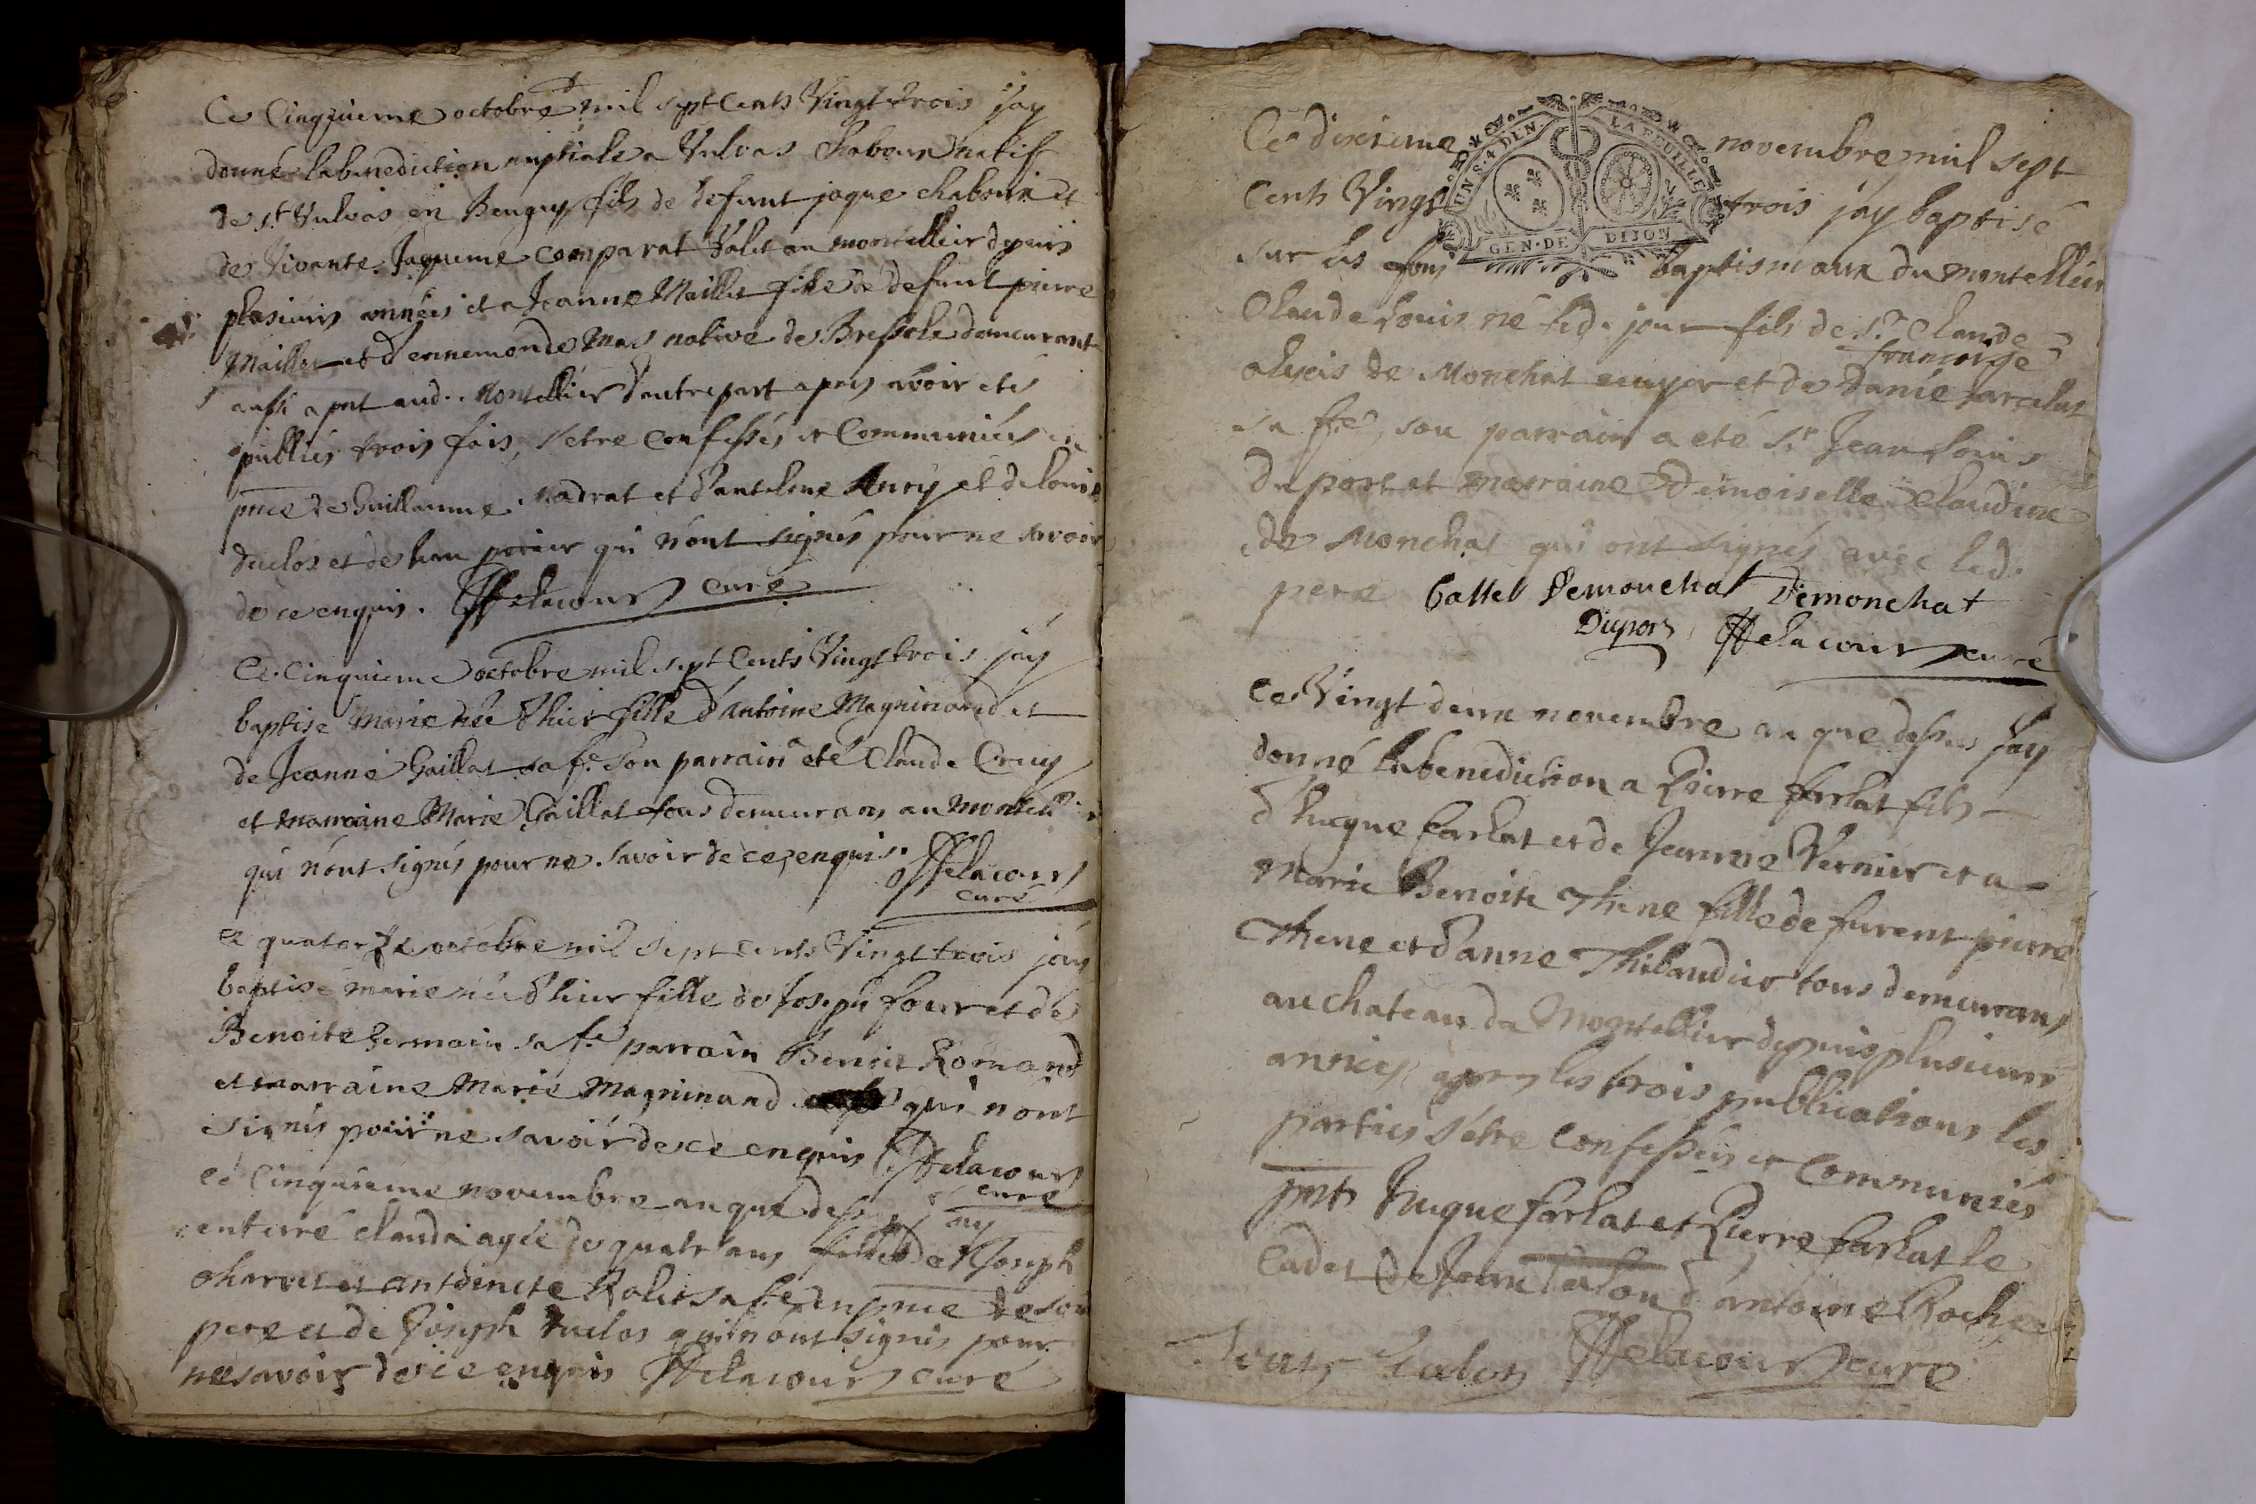 Ce Cinquieme octobre mil sept Cents Vingt trois jay
donné la benediction nuptiale a Vulvas Chaboux natif
de st Vulvas en Beugey fils de defunt jaque chaboux et
de Vivante Jaqueme comparat Valet au montellier depuis
plusieurs années et a Jeanne Maillet fille de defunt pierre
Maillet et d'ennemonde Mas native de Bressole demeurant
aussi a pnt aud. Montellier d'autre part apres avoir etés
publiés trois fois, s'etre confessés et Communiés en
pnce de Guillaume Nadrat et d'antelme Anry et de louis
duclos et de qui n'ont signés pour ne savoir
de ce enquis. Delacour curé
Ce Cinquieme octobre mil sept Cents Vingt trois jay
baptisé Marie née d'hier fille d'antoine Magninand et
de Jeanne Gaillat sa fe son parrain eté Claude Cruy
et marraine Marie Gaillat tous demeurans au montellier
qui n'ont signés pour ne savoir de ce enquis. Delacour
curé
Ce quatorze octobre mil sept cents Vingt trois jay
baptisé marie née d'hier fille de Joseph four et de
Benoite Germain sa fe parrain Benoit Romand
et marraine Marie Magninand qui n'ont
signés pour ne savoir de ce enquis Delacour
curé
Ce Cinquieme novembre an que dessus jay
enterré claudai agée de quatr ans fille de Joseph
charvet et antoinete Rolet sa fe en pnce de son
pere et de Joseph duclos qui n'ont signés pour
ne savoir de ce enquis Delacour curé
Ce dixieme novembre mil sept
UN S. 4 DEN. LA FEUILLE
Cents Vingt trois jay baptisé
GEN. DE DIJON
sur les fons baptismaux du montellier
Claude Louis né led. jour fils de sr Claude
françoise
alexis de Monchat ecuyer et de Danié
sa fe, son parrain a eté sr Jean Louis
Duport et marraine Demoiselle Claudine
de Monchat qui ont signés avec led.
pere battel Demonchat Demonchat
Duport Delacour curé
Ce Vingt deux novembre an que dessus jay
donné la benediction a Pierre farlat fils
d'hugue farlat et de Jeanne Vernier et a
Marie Benoite Thene fille de furent pierre
Thene et d'anne Thibaudier tous demeurans
au chateau du Montellier depuis plusieurs
années apres les trois publications les
parties s'étre confessées et communiés
pnts hugue farlat et Pierre farlat le
Cadet de Jean talon d'antoine Roche
Jean talon Delacour curé